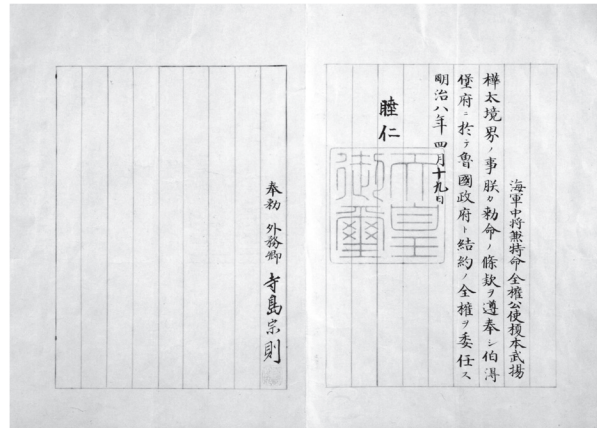 海軍中将兼特命全権公使榎本武揚
樺太境界ノ事朕カ勅命ノ條款ヲ遵奉シ伯得
堡府ニ於テ魯國政府ト結約ノ全権ヲ委任ス
明治八年四月十九日
睦仁
天皇御璽
奉勅 外務卿 寺島宗則